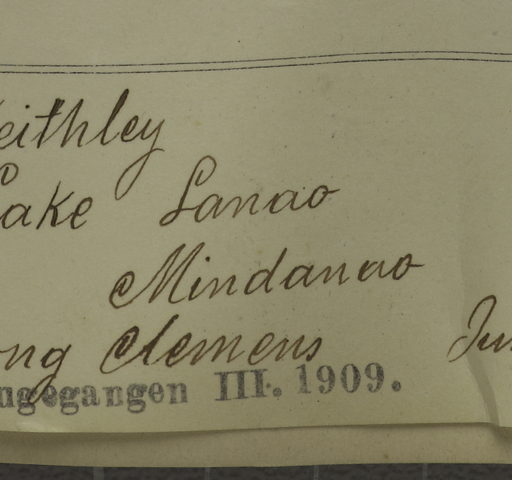 eithley
Lake Lanao
Mindanao
ong Clemens Jun
ngegangen III. 1909.